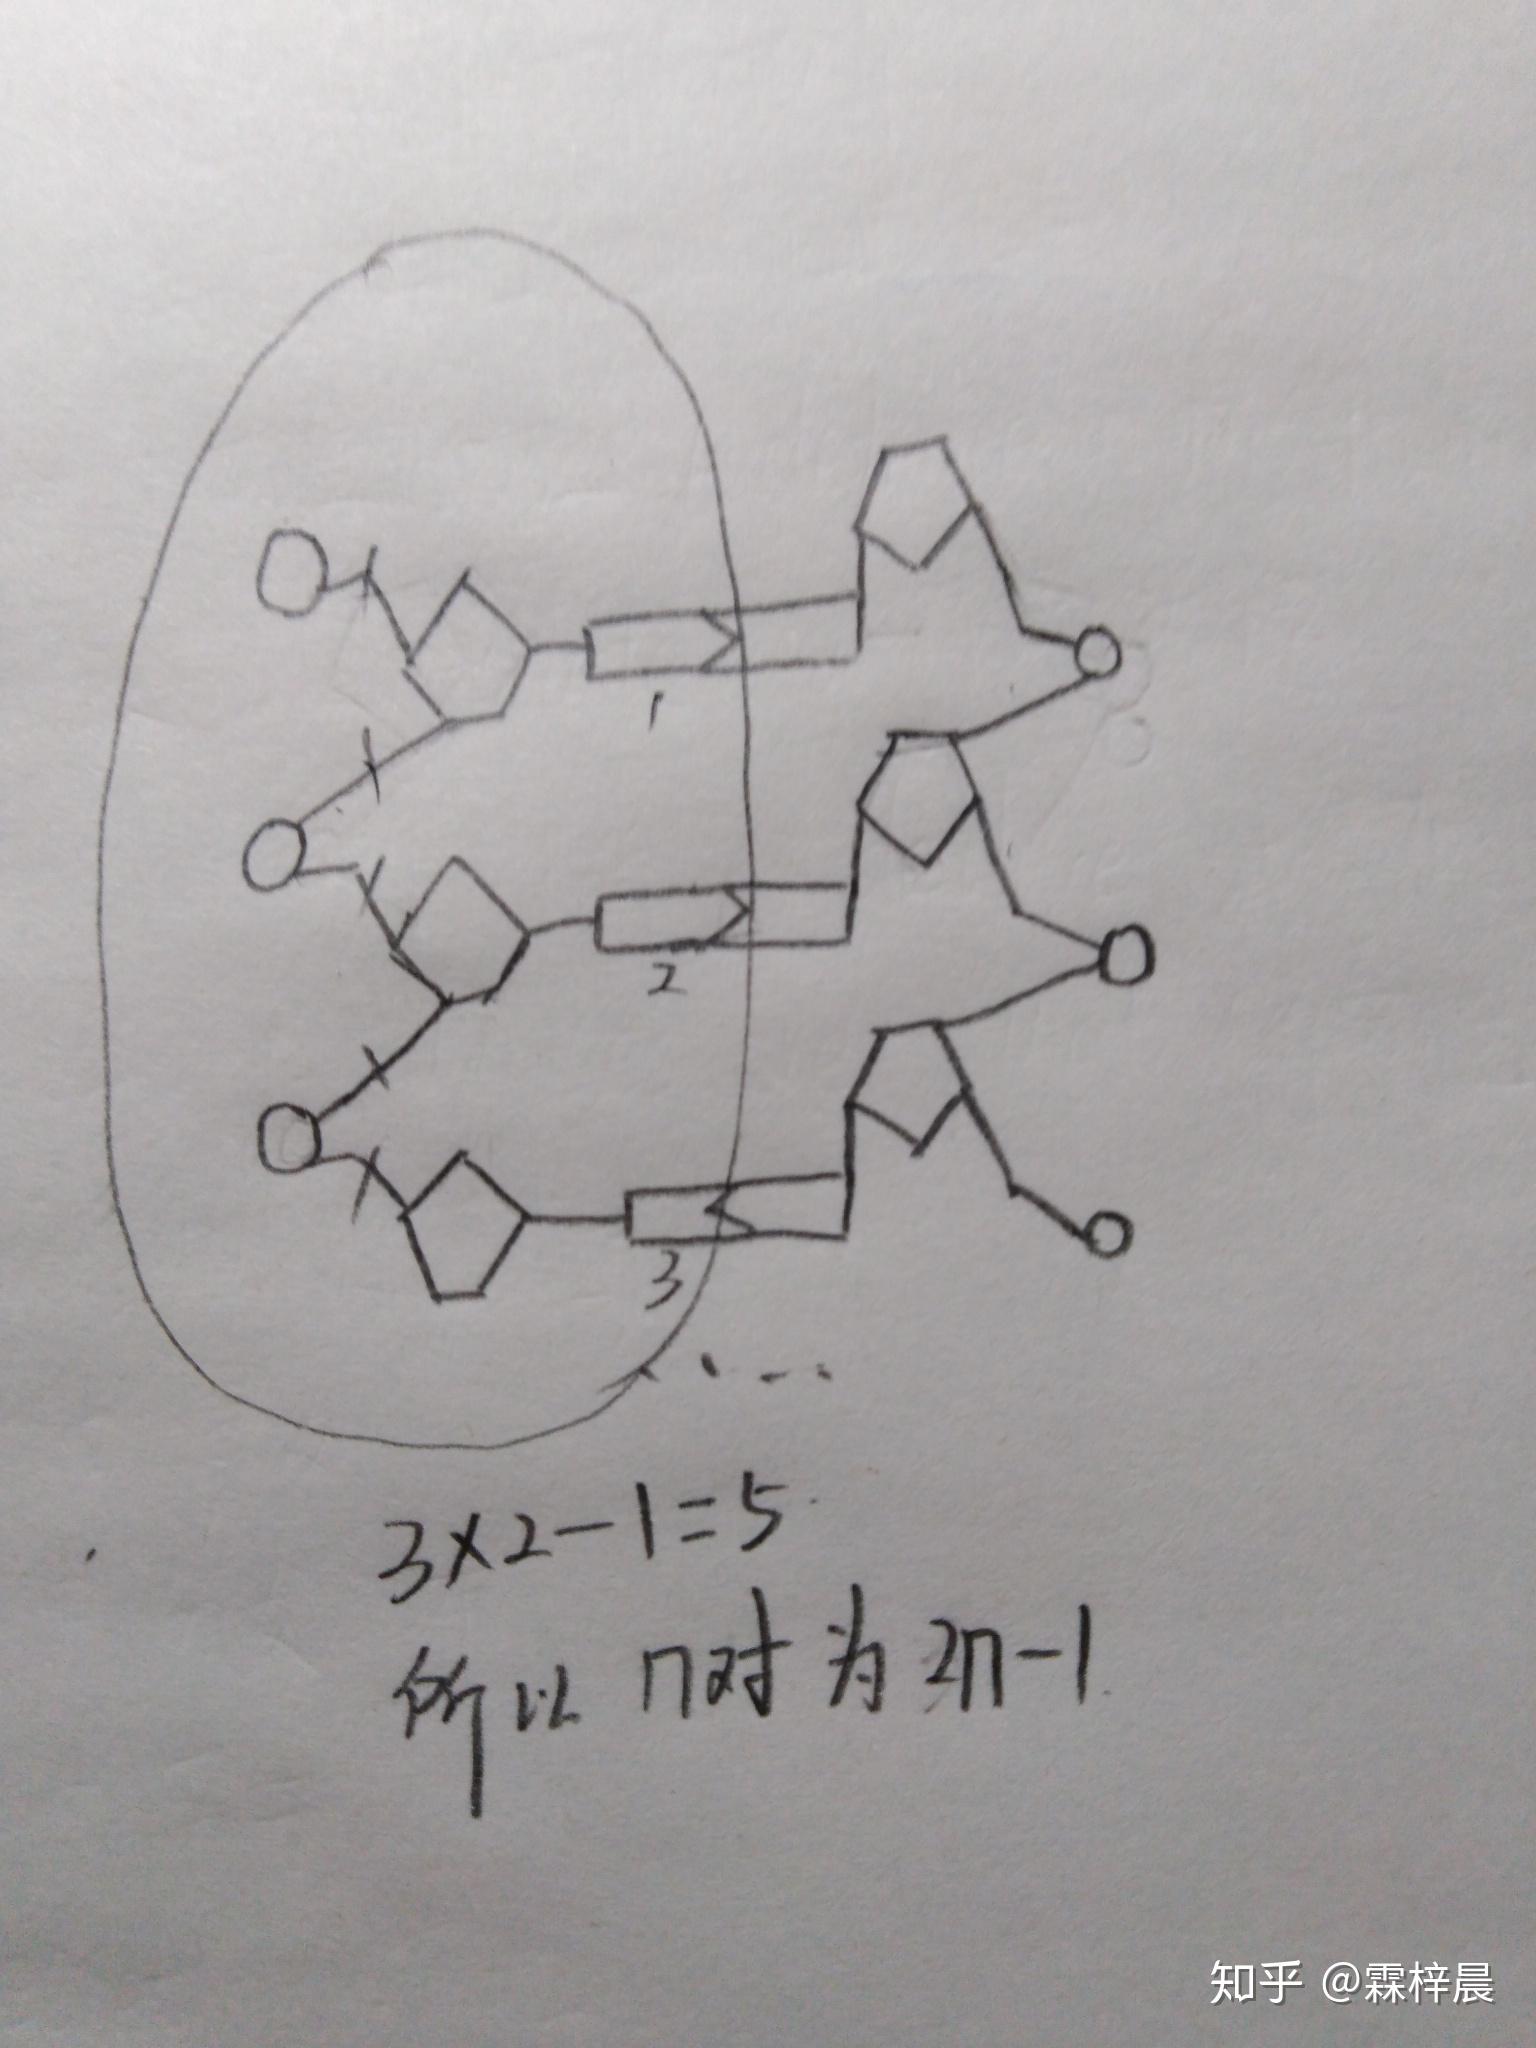 1
2
3
3×2-1=5
所以 n对为 2n-1
知乎 @霖梓晨